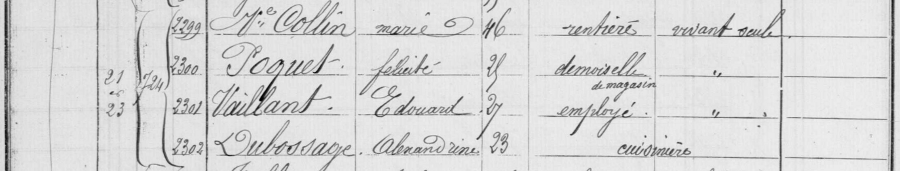 2299 Vve Collin marie 46 rentière vivant seule
2300 Poquet. félicité 25 demoiselle de magasin "
21 et 23 724
2301 Vaillant. Edouard 27 employé. "
2302 Dubossage. Alexandrine 23 cuisinière